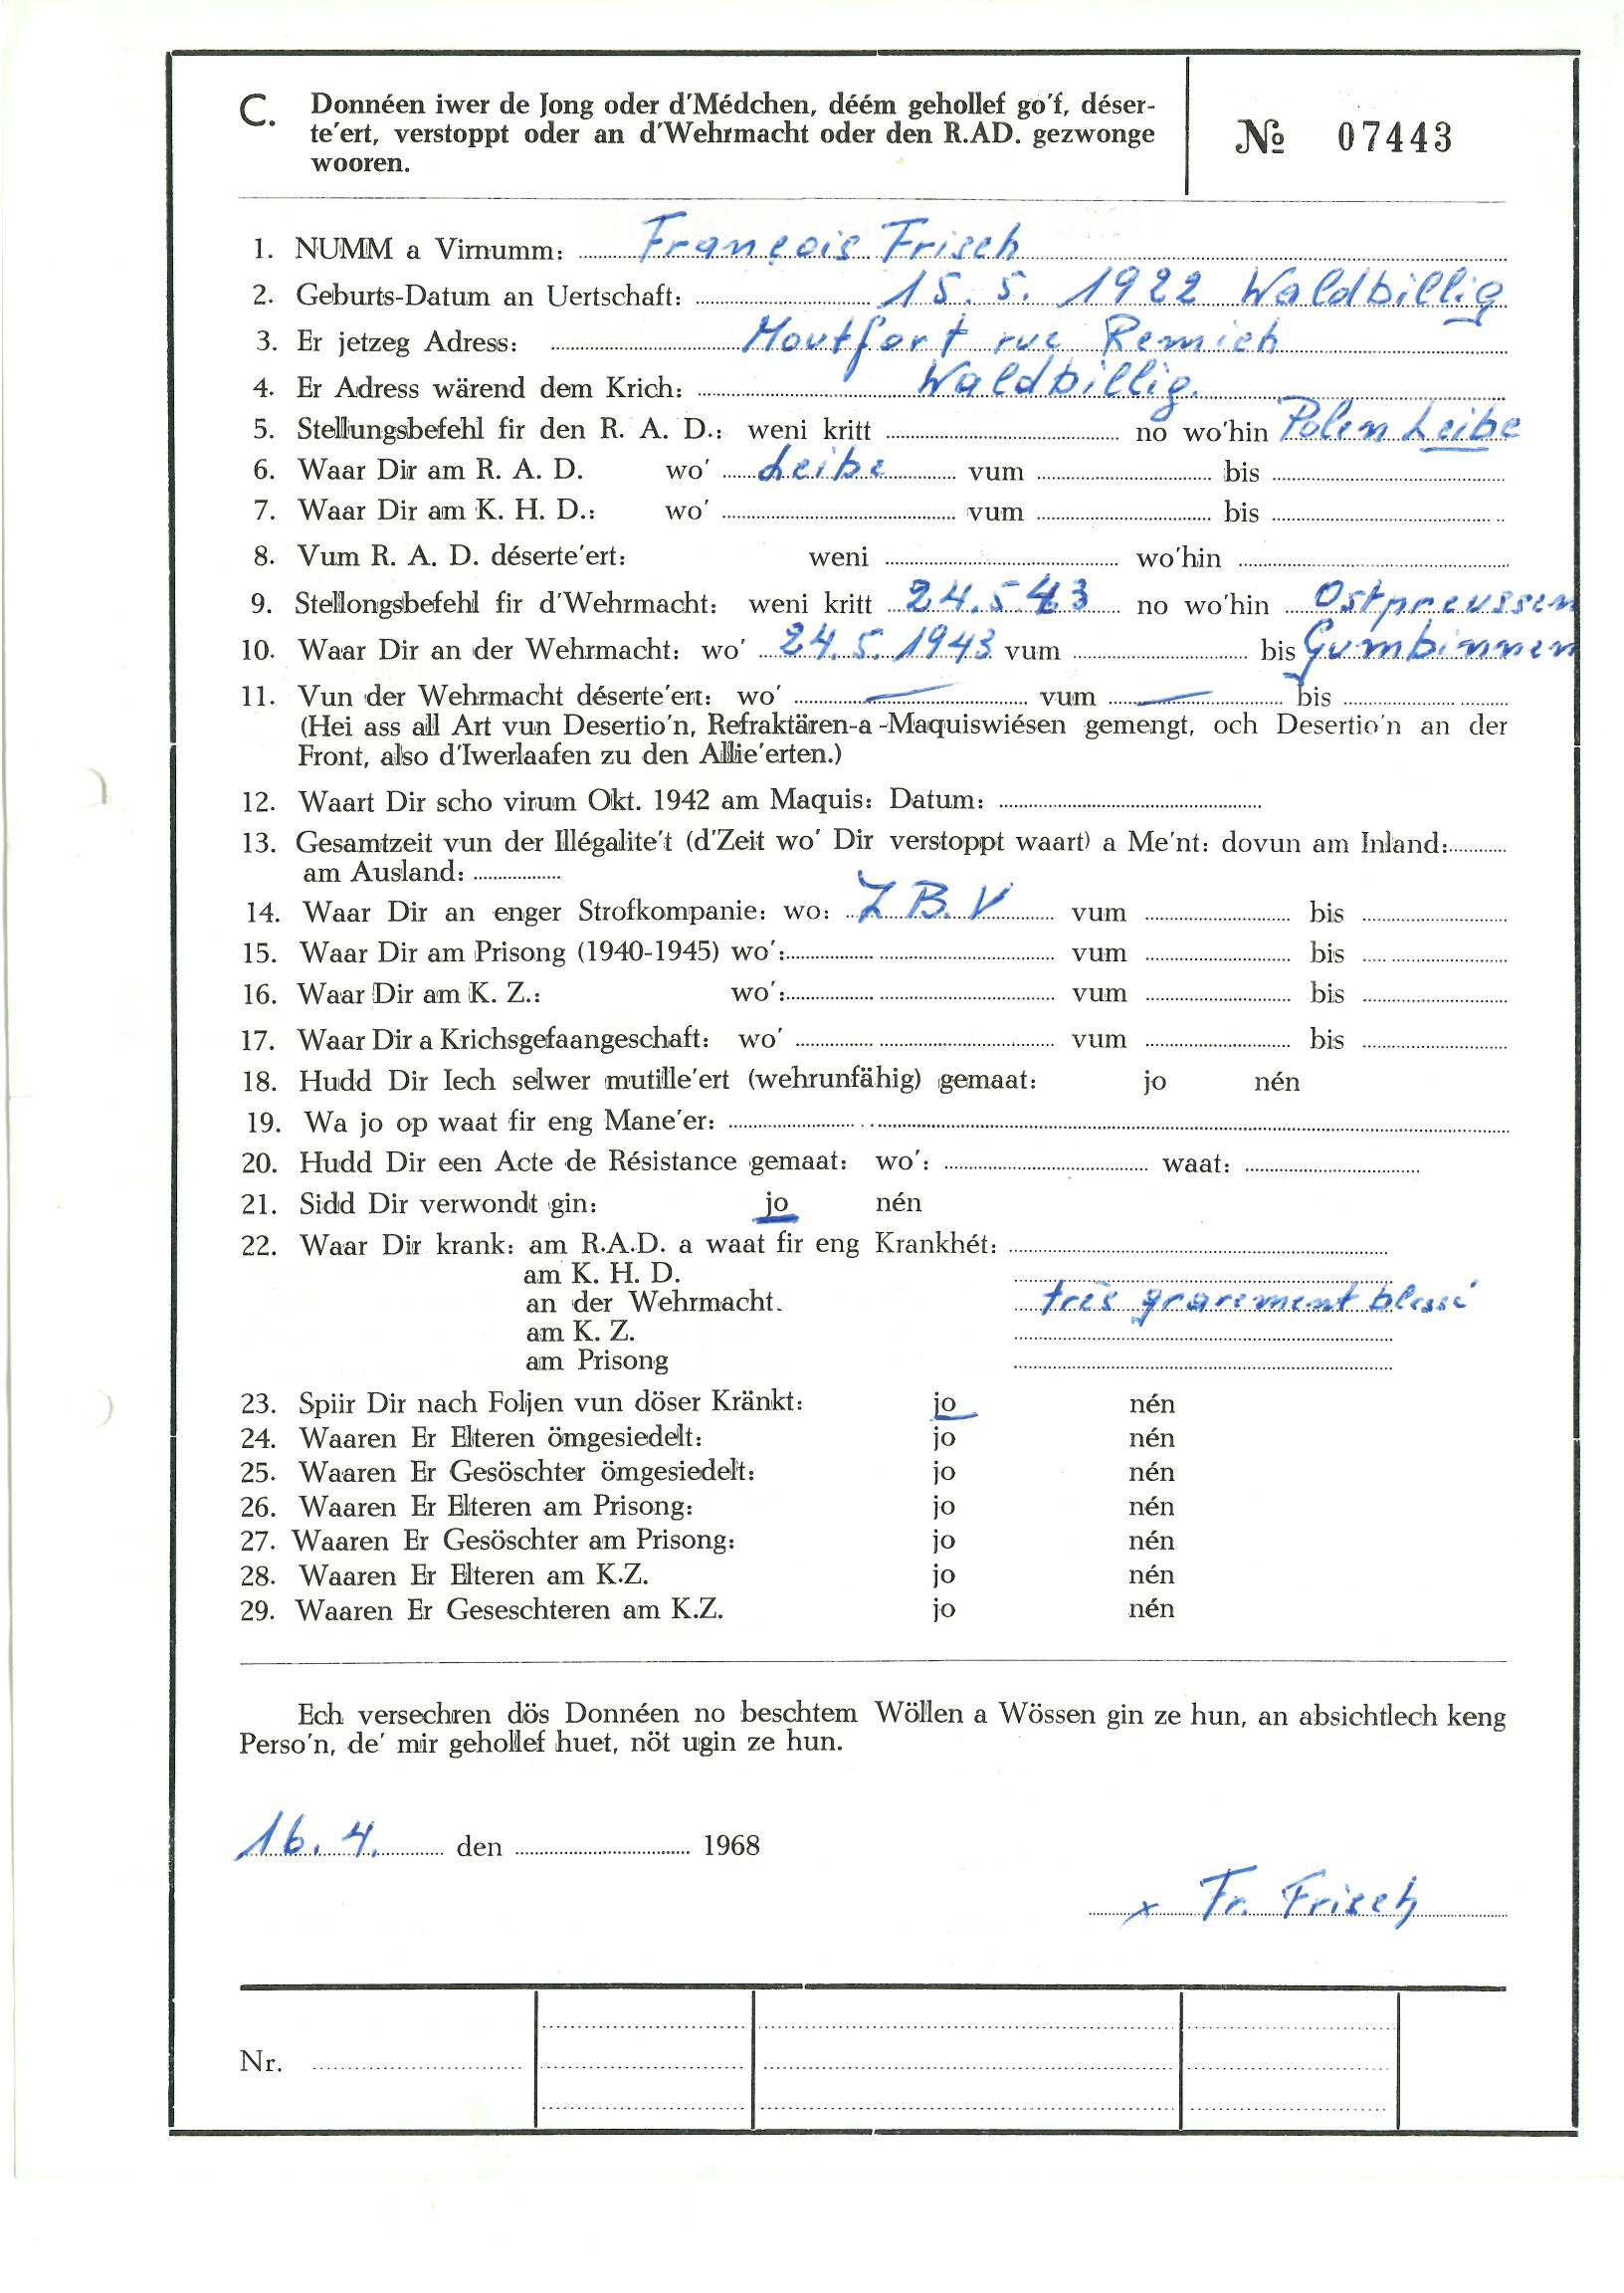 C. Donnéen iwer de Jong oder d'Médchen, déém gehollef go'f, déser-
te'ert, verstoppt oder an d'Wehrmacht oder den R.AD. gezwonge
wooren.
№ 07443
1. NUMM a Virnumm: François Frisch
2. Geburts-Datum an Uertschaft: 15. 5. 1922 Waldbillig
3. Er jetzeg Adress: Moutfort rue Remich
4. Er Adress wärend dem Krich: Waldbillig.
5. Stellungsbefehl fir den R. A. D.: weni kritt no wo'hin Polen Leibe
6. Waar Dir am R. A. D. wo' Leibe vum bis
7. Waar Dir am K. H. D.: wo' vum bis
8. Vum R. A. D. déserte'ert: weni wo'hin
9. Stellongsbefehl fir d'Wehrmacht: weni kritt 24.5.43 no wo'hin Ostpreussen
10. Waar Dir an der Wehrmacht: wo' 24.5.1943 vum bis Gumbinnen
11. Vun der Wehrmacht déserte'ert: wo' — vum — bis
(Hei ass all Art vun Desertio'n, Refraktären-a -Maquiswiésen gemengt, och Desertio'n an der
Front, also d'Iwerlaafen zu den Allie'erten.)
12. Waart Dir scho virum Okt. 1942 am Maquis: Datum:
13. Gesamtzeit vun der Illégalite't (d'Zeit wo' Dir verstoppt waart) a Me'nt: dovun am Inland:
am Ausland:
14. Waar Dir an enger Strofkompanie: wo: Z B. V vum bis
15. Waar Dir am Prisong (1940-1945) wo': vum bis
16. Waar Dir am K. Z.: wo': vum bis
17. Waar Dir a Krichsgefaangeschaft: wo' vum bis
18. Hudd Dir Iech selwer mutille'ert (wehrunfähig) gemaat: jo nén
19. Wa jo op waat fir eng Mane'er:
20. Hudd Dir een Acte de Résistance gemaat: wo': waat:
21. Sidd Dir verwondt gin: jo nén
22. Waar Dir krank: am R.A.D. a waat fir eng Krankhét:
am K. H. D.
an der Wehrmacht. très gravement blessé
am K. Z.
am Prisong
23. Spiir Dir nach Foljen vun döser Kränkt: jo nén
24. Waaren Er Elteren ömgesiedelt: jo nén
25. Waaren Er Gesöschter ömgesiedelt: jo nén
26. Waaren Er Elteren am Prisong: jo nén
27. Waaren Er Gesöschter am Prisong: jo nén
28. Waaren Er Elteren am K.Z. jo nén
29. Waaren Er Geseschteren am K.Z. jo nén
Ech versechren dös Donnéen no beschtem Wöllen a Wössen gin ze hun, an absichtlech keng
Perso'n, de' mir gehollef huet, nöt ugin ze hun.
16. 4. den 1968
x Fr. Frisch
Nr.